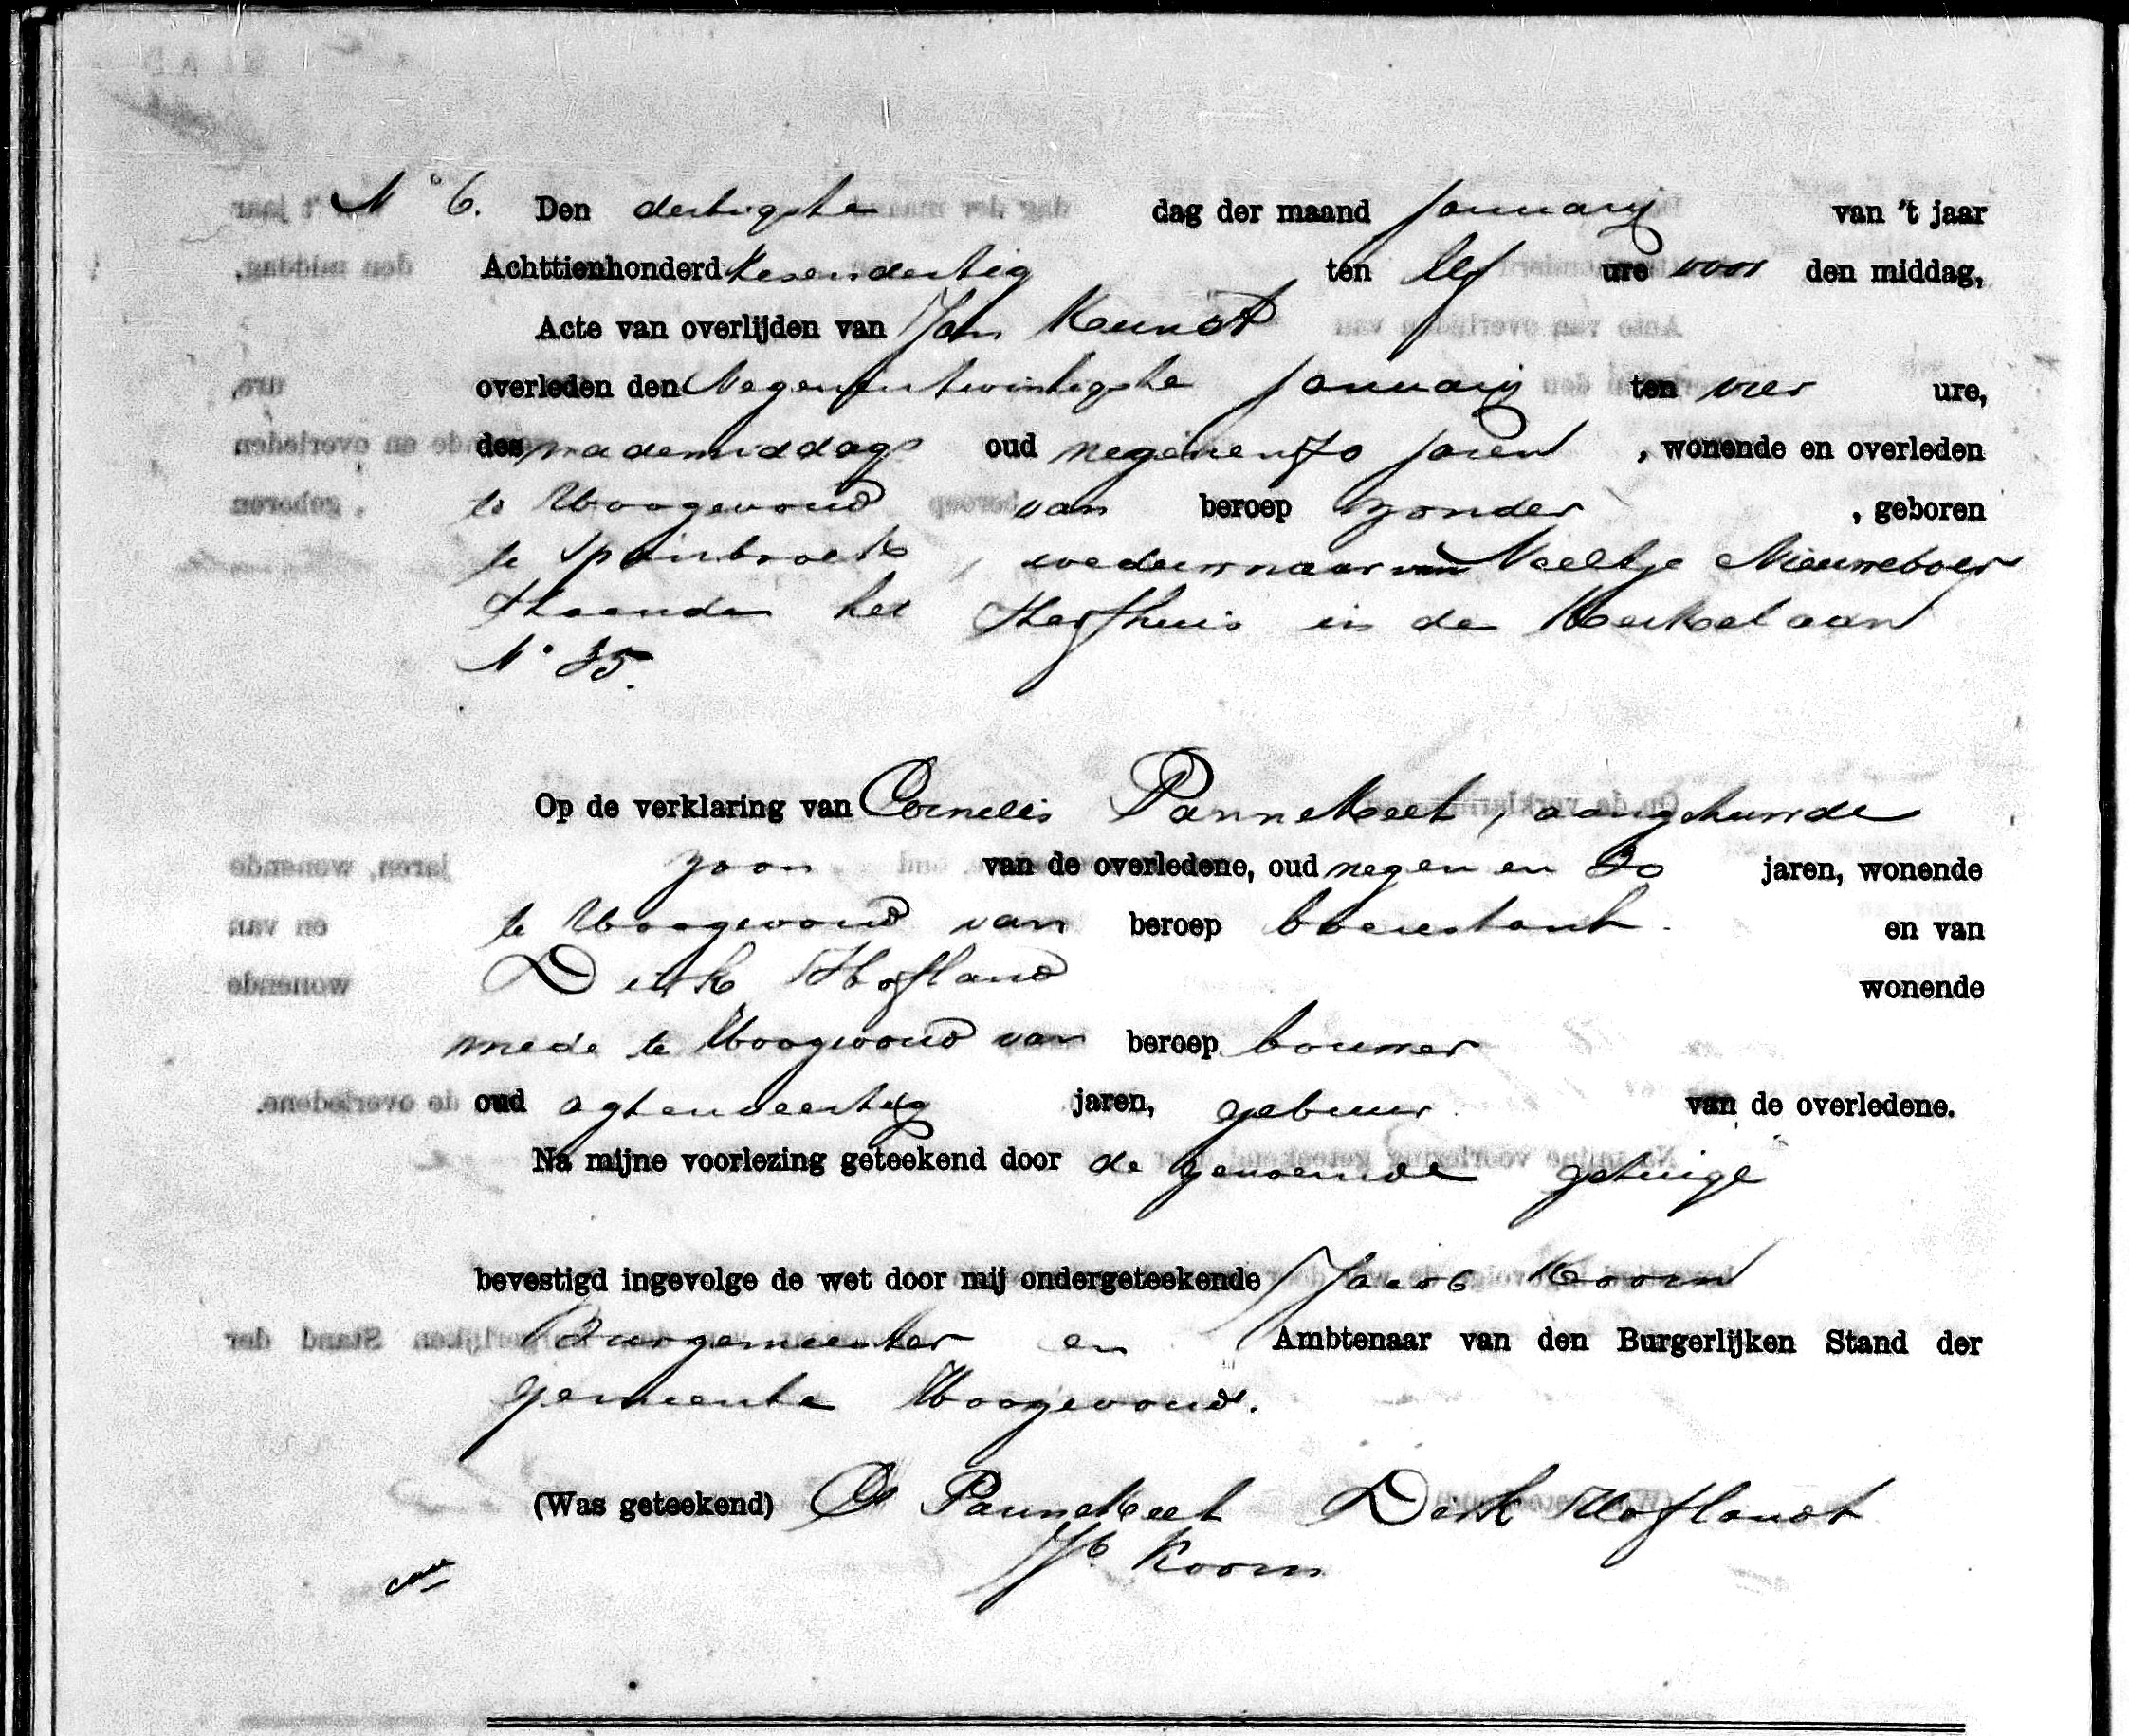 N° 6. Den dertigste dag der maand Januarij van 't jaar
Achttienhonderd zesendertig ten elf ure voor den middag,
Acte van overlijden van Jan Kunst
overleden den Negenentwintigste Januarij ten vier ure,
des nademiddags oud negenen 70 jaren, wonende en overleden
te Hoogwoud van beroep zonder, geboren
te Spanbroek, weduwnaar van Neeltje Nieuweboer
staande het sterfhuis in de Kerkelaan
N° 35.
Op de verklaring van Cornelis Pannekeet, aangehuwde
zoon van de overledene, oud negen en 30 jaren, wonende
te Hoogwoud van beroep en van
Dirk Hofland wonende
mede te Hoogwoud van beroep bouwer
oud agtenveertig jaren, gebuur van de overledene.
Na mijne voorlezing geteekend door de genoemde getuige
bevestigd ingevolge de wet door mij ondergeteekende Jacob Koorn
Burgemeester en Ambtenaar van den Burgerlijken Stand der
gemeente Hoogewoud.
(Was geteekend) C Pannekeet Dirk Hoflandt
Jb Koorn